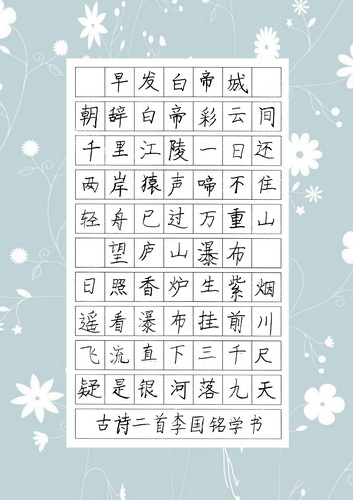 早发白帝城
朝辞白帝彩云间
千里江陵一日还
两岸猿声啼不住
轻舟已过万重山
望庐山瀑布
日照香炉生紫烟
遥看瀑布挂前川
飞流直下三千尺
疑是银河落九天
古诗二首李国铭学书